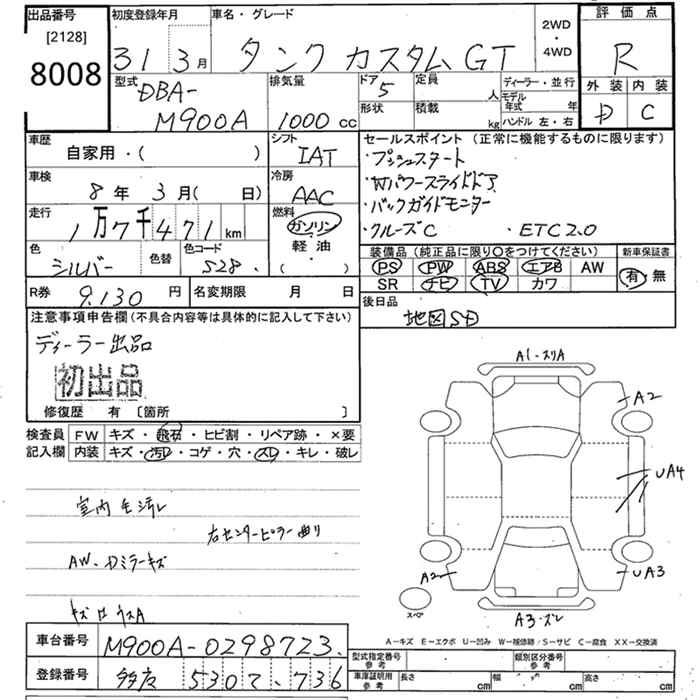 出品番号
[2128]
8008
初度登録年月
31 3月
車名・グレード
タンク カスタム GT
2WD
・
4WD
評価点
R
外装 内装
D C
型式
DBA-
M900A
排気量
1000 cc
ドア
5
定員
人
形状
積載
kg
ディーラー・並行
モデル
年式 年
ハンドル 左・右
車歴
自家用・( )
シフト
IAT
車検
8年 3月( 日)
冷房
AAC
走行
1万7千471km
燃料
ガソリン
軽油
( ・ )
色
シルバー
色替
色コード
S28.
セールスポイント (正常に機能するものに限ります)
・プッシュスタート
・Wパワースライドドア
・バックガイドモニター
・クルーズC ・ETC2.0
装備品(純正品に限り○をつけてください)
新車保証書
PS PW ABS エアB AW
SR ナビ TV カワ
有・無
R券 9.130 円
名変期限 月 日
後日品
地図SD
注意事項申告欄(不具合内容等は具体的に記入して下さい)
ディーラー出品
初出品
修復歴 有 〔箇所 〕
検査員
記入欄
FW キズ・飛石・ヒビ割・リペア跡・×要
内装 キズ・汚レ・コゲ・穴・スレ・キレ・破レ
室内毛汚レ
右センターピラー曲り
AW・Dミラーキズ
A1・スリA
A2
UA4
UA3
A2
スペア
A3・ズレ
A-キズ E-エクボ U-凹み W-補修跡/S-サビ C-腐食 XX-交換済
車台番号
M900A-0298723.
登録番号
5302 . 736
型式指定番号
参考
類別区分番号
参考
車庫証明用
参考
長さ cm
幅 cm
高さ cm